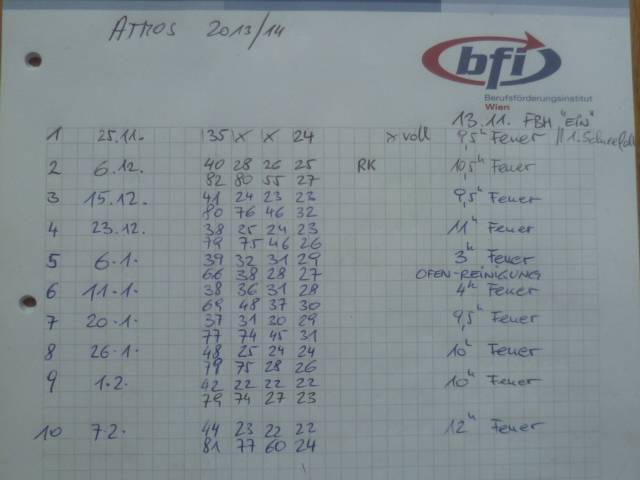 ATMOS 2013/14
bfi
Berufsförderungsinstitut
Wien
13.11. FBH "EIN"
1 25.11. 35 x x 24 x voll 9,5h Feuer // 1. Schneefall
2 6.12. 40 28 26 25 RK 10,5h Feuer
82 80 55 27
3 15.12. 41 24 23 23 9,5h Feuer
80 76 46 32
4 23.12. 38 25 24 23 11h Feuer
79 75 46 26
5 6.1. 39 32 31 29 3h Feuer
66 38 28 27 OFEN-REINIGUNG
6 11.1. 38 36 31 28 4h Feuer
69 48 37 30
7 20.1. 37 31 30 29 9,5h Feuer
77 74 45 31
8 26.1. 48 25 24 24 10h Feuer
79 75 28 26
9 1.2. 42 22 22 22 10h Feuer
79 74 27 23
10 7.2. 44 23 22 22 12h Feuer
81 77 60 24